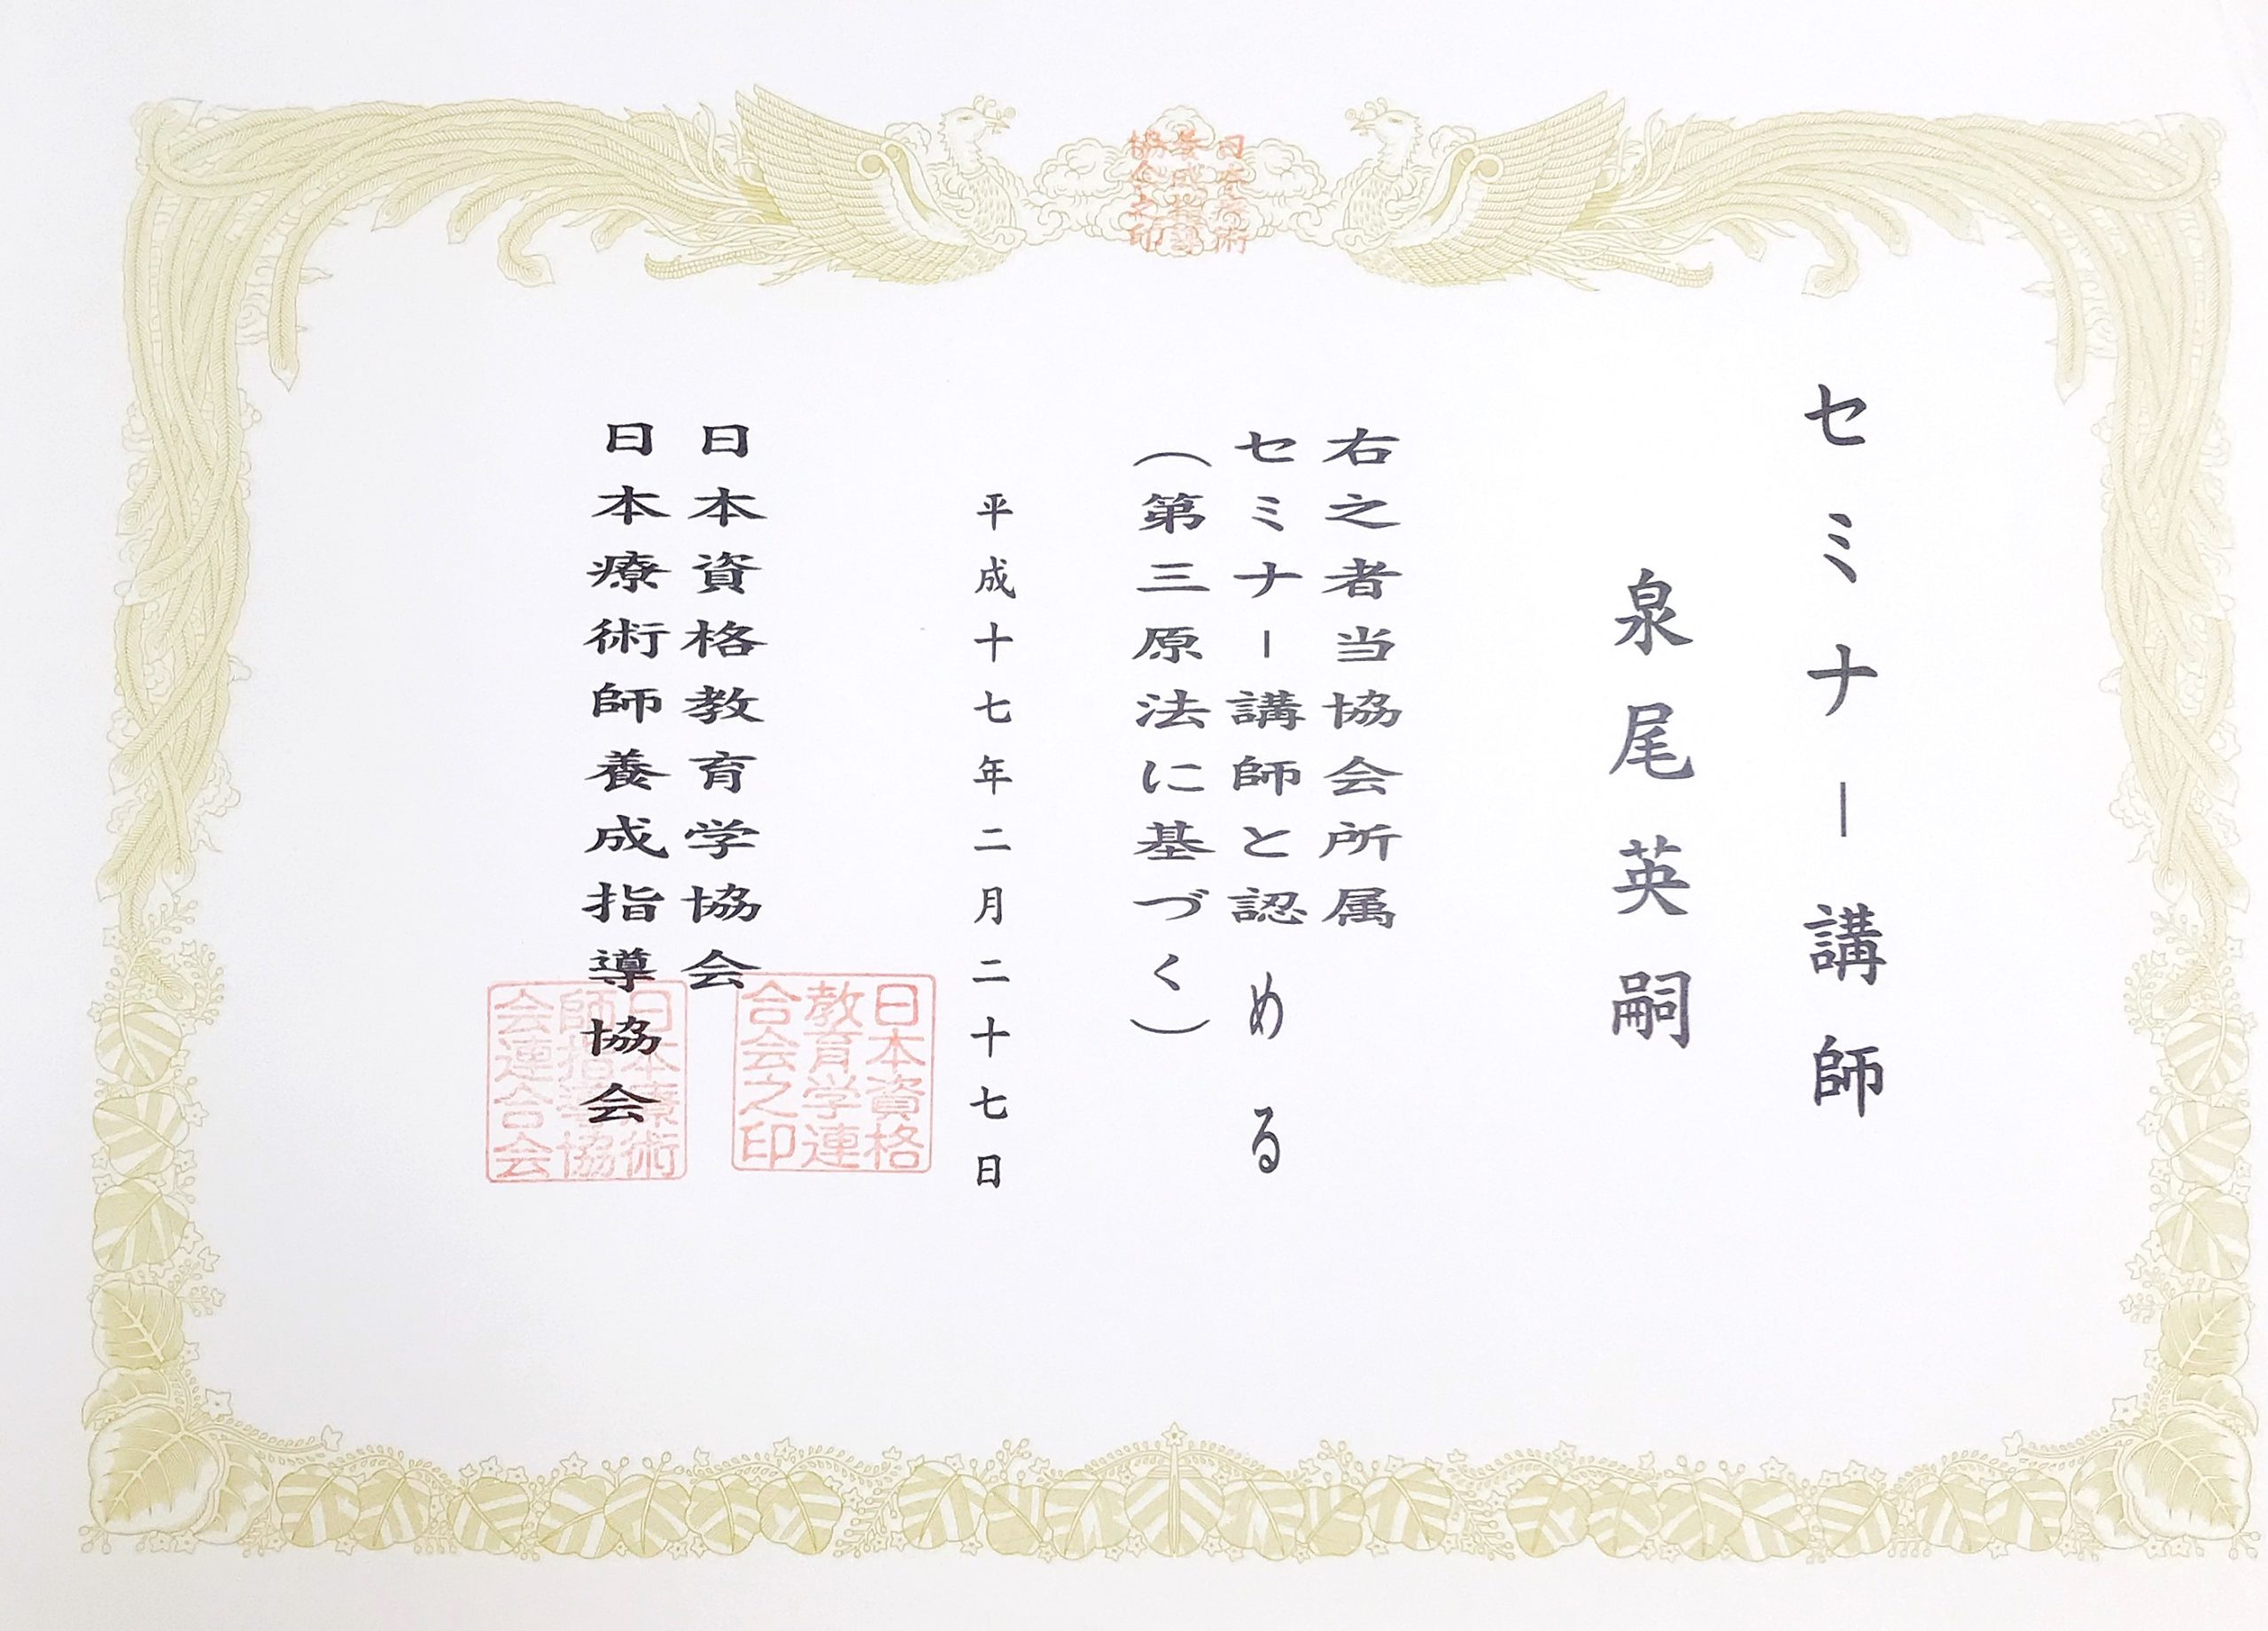 セミナー講師
泉尾英嗣
右之者当協会所属
セミナー講師と認める
(第三原法に基づく)
平成十七年二月二十七日
日本資格教育学協会
日本療術師養成指導協会
日本資格
教育学連
合会之印
日本療術
師指導協
会連合会
日本療術
養成指導
協会之印